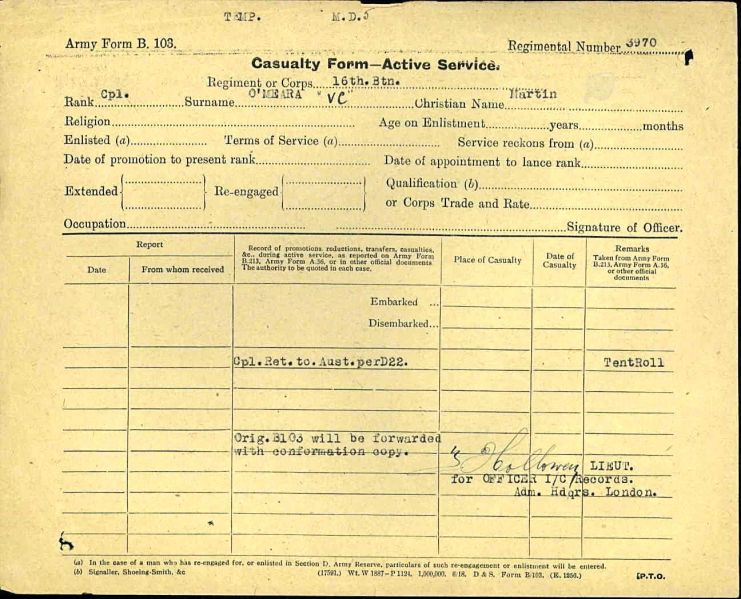 TEMP. M.D.5
Army Form B. 103. Regimental Number 3970
Casualty Form—Active Service.
Regiment or Corps 16th.Btn.
Rank Cpl. Surname O'MEARA "VC" Christian Name Martin
Religion Age on Enlistment years months
Enlisted (a) Terms of Service (a) Service reckons from (a)
Date of promotion to present rank Date of appointment to lance rank
Extended Re-engaged Qualification (b)
or Corps Trade and Rate
Occupation Signature of Officer.
Report
Date
From whom received
Record of promotions, reductions, transfers, casualties,
&c., during active service, as reported on Army Form
B.213, Army Form A.36, or in other official documents
The authority to be quoted in each case.
Place of Casualty
Date of
Casualty
Remarks
Taken from Army Form
B.213, Army Form A.36,
or other official
documents
Embarked ...
Disembarked...
Cpl.Ret.to.Aust.perD22. TentRoll
Orig.B103 will be forwarded
with conformation copy.
Holloway LIEUT.
for OFFICER I/C/Records.
Adm. Hdqrs. London.
(a) In the case of a man who has re-engaged for, or enlisted in Section D. Army Reserve, particulars of such re-engagement or enlistment will be entered.
(b) Signaller, Shoeing-Smith, &c (17591.) Wt. W 1887—P 1124. 1,000,000. 6/18. D & S. Form B/103. (E. 1256.) [P.T.O.